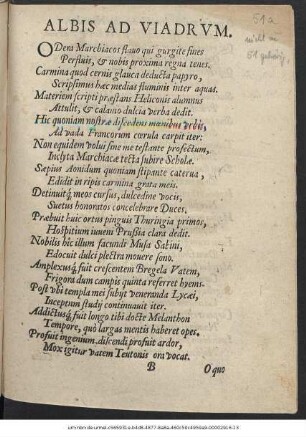 ALBIS AD VIADRVM.
ODera Marchiacos flauo qui gurgite fines
Perfluis, & nobis proxima regna tenes.
Carmina quod cernis glauca deducta papyro,
Scripsimus hæc medias fluminis inter aquas.
Materiem scripti præstans Heliconis alumnus
Attulit, & calamo dulcia verba dedit.
Hic quoniam nostræ discedens mœnibus vrbis,
Ad vada Francorum cœrula carpit iter:
Non equidem volui sine me testante profectum,
Inclyta Marchiacæ tecta subire Scholæ.
Sæpius Aonidum quoniam stipante caterua,
Edidit in ripis carmina grata meis.
Detinuitq́; meos cursus, dulcedine vocis,
Suetus honoratos concelebrare Duces,
Præbuit huic ortus pinguis Thuringia primos,
Hospitium iuueni Prussia clara dedit.
Nobilis hic illum facundi Musa Sabini,
Edocuit dulci plectra mouere sono.
Amplexusq́; fuit crescentem Bregela Vatem,
Frigora dum campis quinta referret hyems.
Post vbi templa mei subijt veneranda Lycæi,
Inceptum study continuauit iter.
Addictusq́; fuit longo tibi docte Melanthon
Tempore, quo largas mentis haberet opes.
Profuit ingenium, discendi profuit ardor,
Mox igitur vatem Teutonis ora vocat.
B
O quo
51a